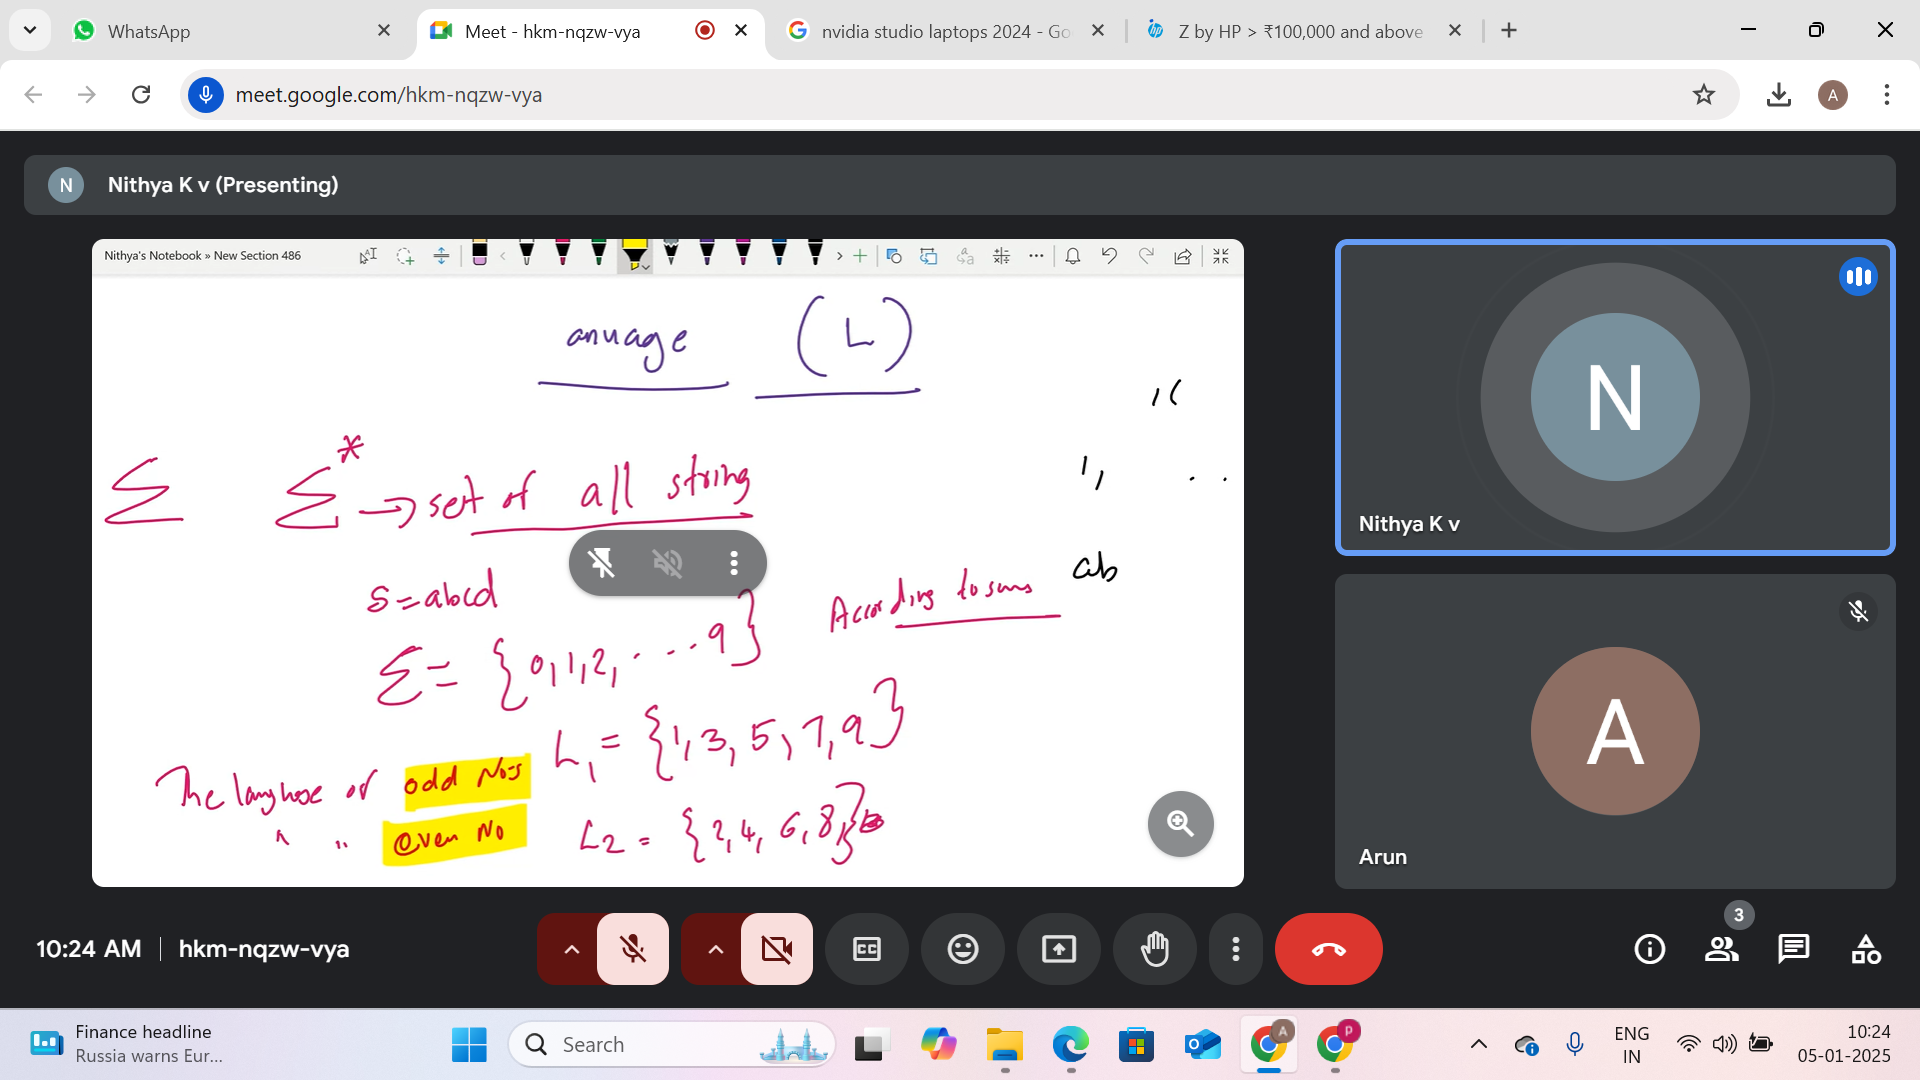 WhatsApp
Meet - hkm-nqzw-vya
nvidia studio laptops 2024 - Go
Z by HP > ₹100,000 and above
meet.google.com/hkm-nqzw-vya
A
N
Nithya K v (Presenting)
Nithya's Notebook » New Section 486
anuage (L)
Σ Σ* → set of all string
s = abcd
ab
According to sums
Σ = {0,1,2, ... 9}
L1 = {1,3,5,7,9}
The language of odd No-s
" " even No
L2 = {2,4,6,8,}
N
Nithya K v
A
Arun
10:24 AM | hkm-nqzw-vya
CC
3
Finance headline
Russia warns Eur...
Search
A
P
ENG
IN
10:24
05-01-2025